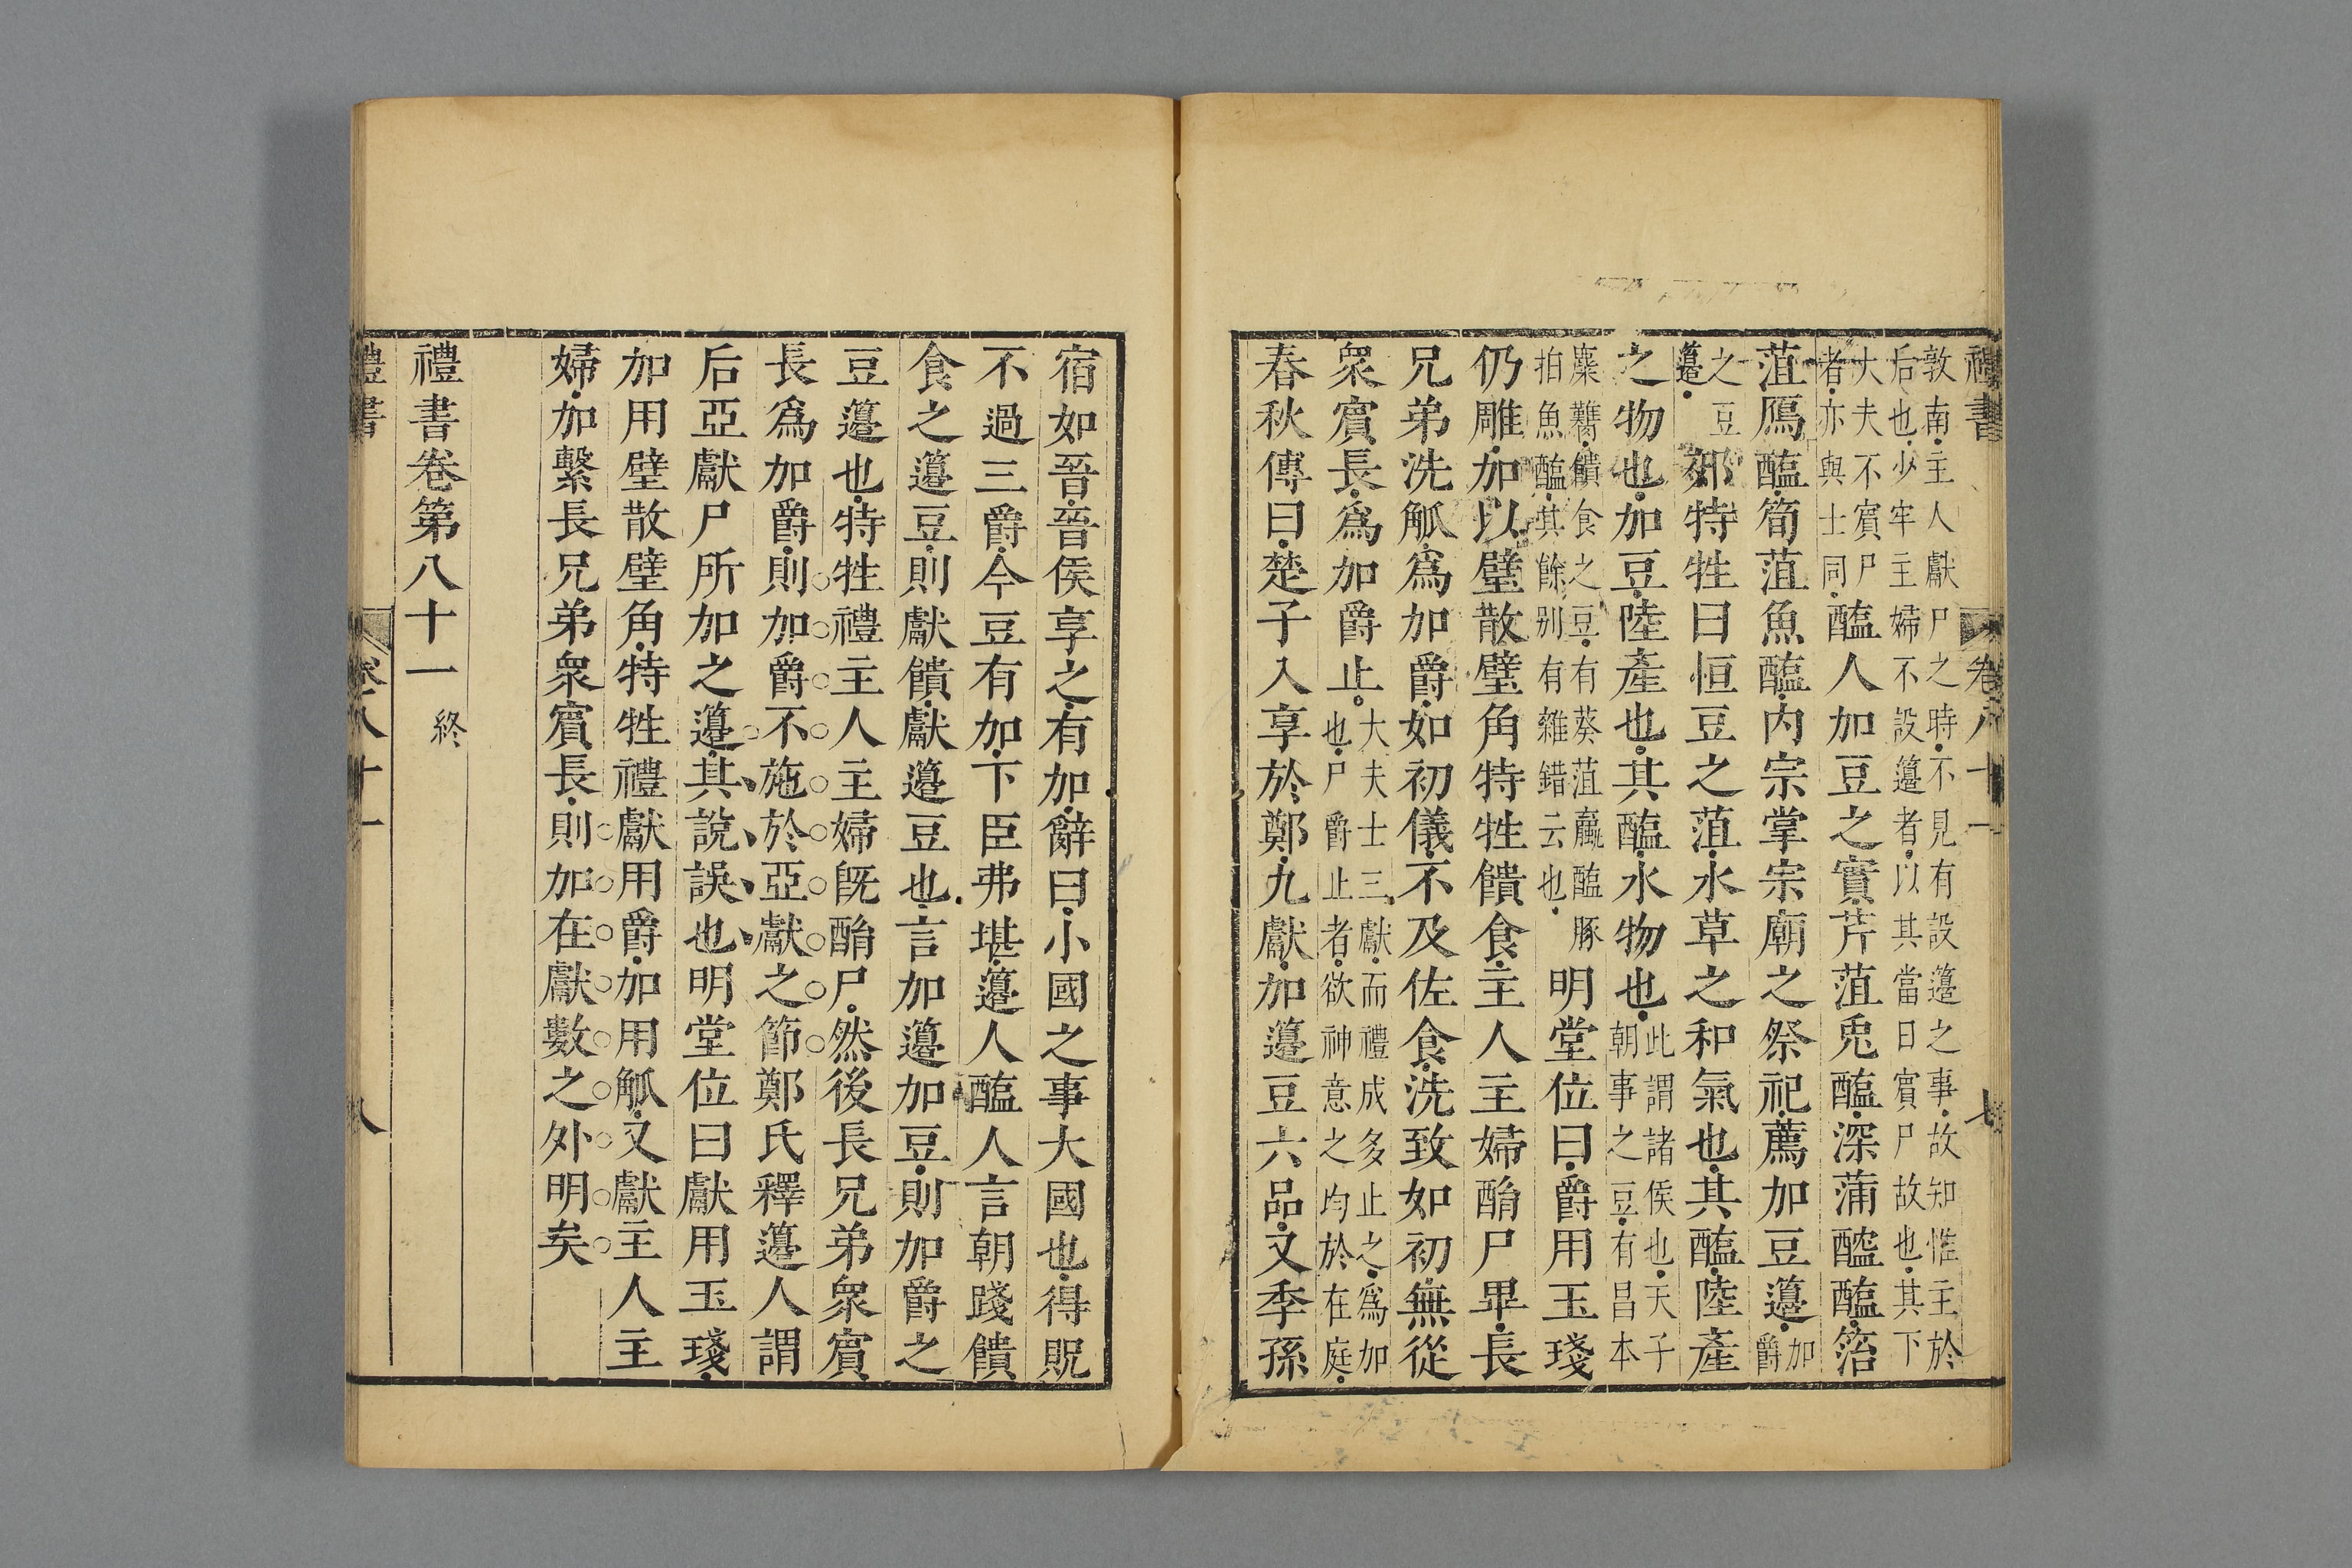 禮書　卷八十一　七
敦南主人獻尸之時不見有設籩之事故知惟主於
后也少牢主婦不設籩者以其當日賓尸故也其下
大夫不賓尸
者亦與士同醢人加豆之實芹菹兎醢深蒲醓醢箈
菹鴈醢筍菹魚醢內宗掌宗廟之祭祀薦加豆籩加爵
之豆
籩郊特牲曰恒豆之菹水草之和氣也其醢陸產
之物也加豆陸產也其醢水物也此謂諸侯也天子
朝事之豆有昌本
麋臡饋食之豆有葵菹蠃醢豚
拍魚醢其餘別有雜錯云也明堂位曰爵用玉琖
仍雕加以璧散璧角特牲饋食主人主婦酳尸畢長
兄弟洗觚爲加爵如初儀不及佐食洗致如初無從
衆賓長爲加爵止大夫士三獻而禮成多止之爲加
也尸爵止者欲神意之均於在庭
春秋傳曰楚子入享於鄭九獻加籩豆六品又季孫
宿如晉晉侯享之有加辭曰小國之事大國也得貺
不過三爵今豆有加下臣弗堪籩人醢人言朝踐饋
食之籩豆則獻饋獻籩豆也言加籩加豆則加爵之
豆籩也特牲禮主人主婦旣酳尸然後長兄弟衆賓
長爲加爵則加爵不施於亞獻之節鄭氏釋籩人謂
后亞獻尸所加之籩其說誤也明堂位曰獻用玉琖
加用璧散璧角特牲禮獻用爵加用觚又獻主人主
婦加繫長兄弟衆賓長則加在獻數之外明矣
禮書卷第八十一終
禮書　卷八十一　八